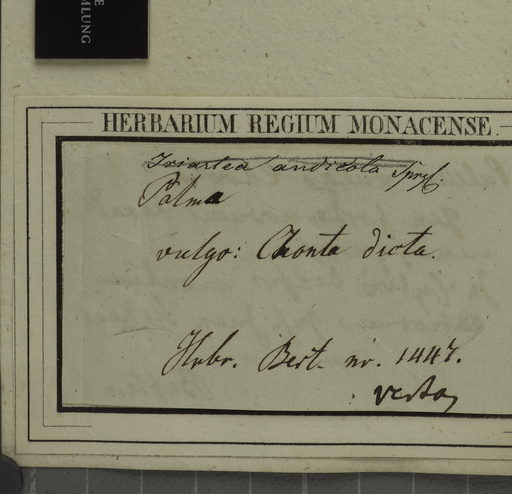 E
MLUNG
HERBARIUM REGIUM MONACENSE.
Iriartea andicola Sprgl.
Palma
vulgo: Chonta dicta.
Hrbr. Bert. nr. 1447.